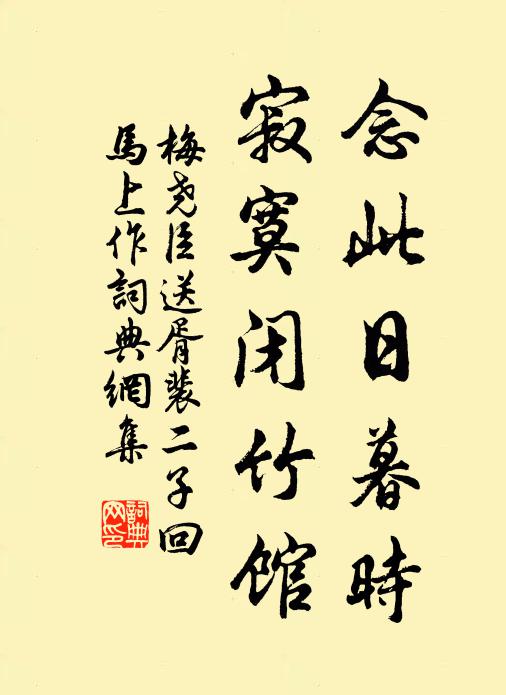 念此日暮時
寂寞閉竹館
梅堯臣送胥裴二子回
馬上作詞典網集
詞典
网印